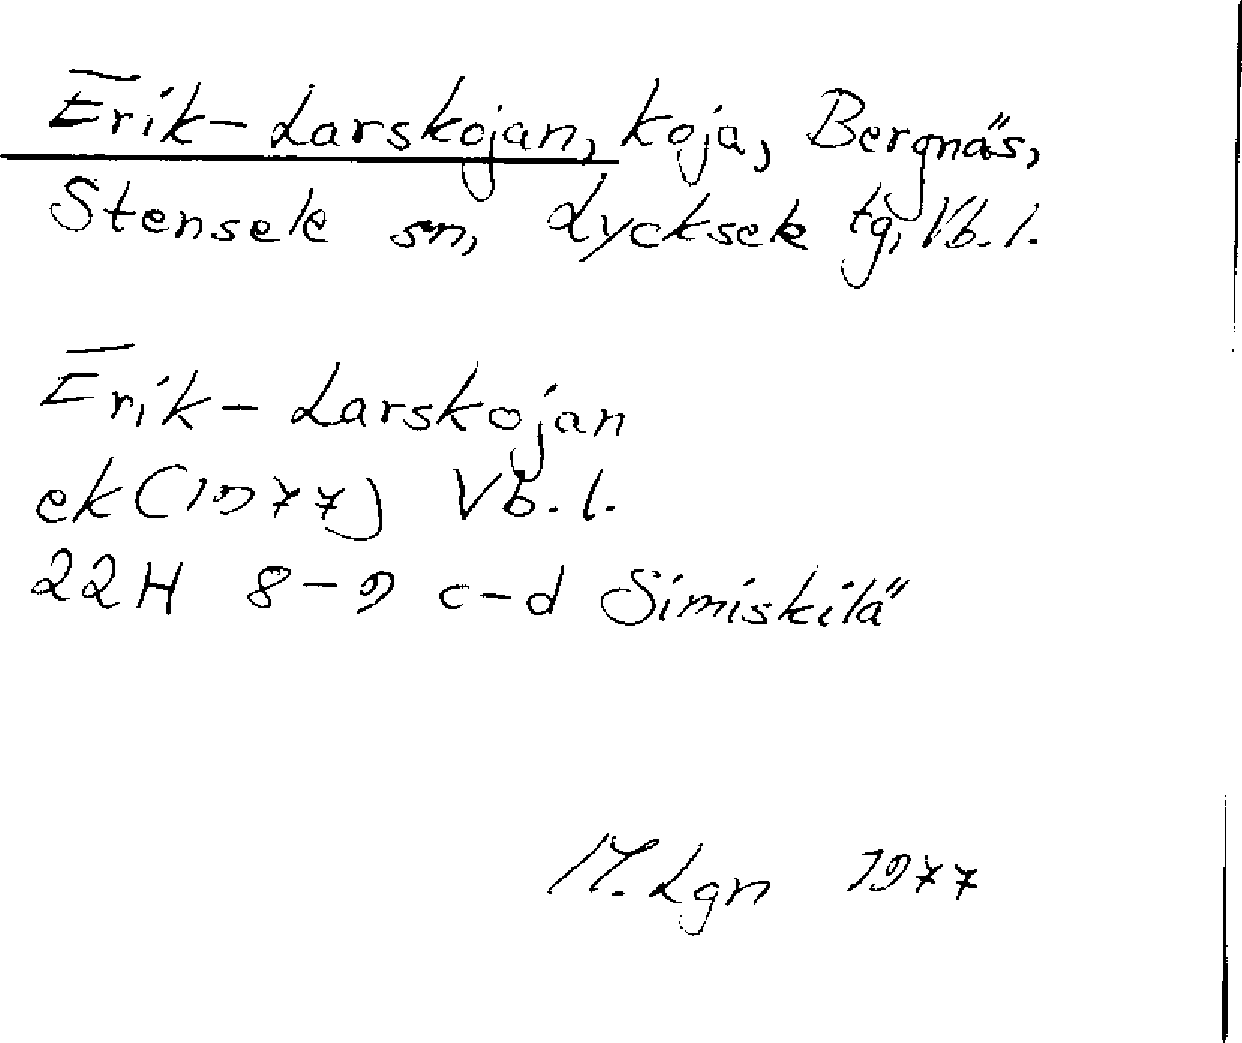 Erik-Larskojan, koja, Bergnäs,
Stensele sn, Lycksele tg, Vb.l.
Erik-Larskojan
ek (1977) Vb.l.
22H 8-9 c-d Simiskilä
M. Lgn 1977